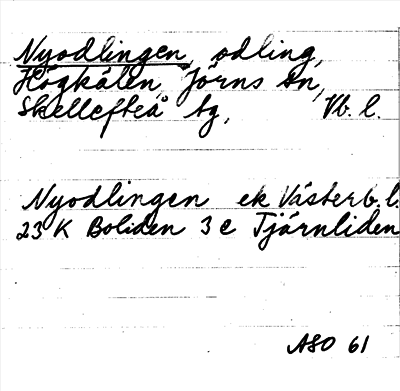 Nyodlingen, odling,
Högkålen, Jörns sn,
Skellefteå tg, Vb. l.
Nyodlingen ek Västerb. l.
23 K Boliden 3 c Tjärnliden
ASO 61